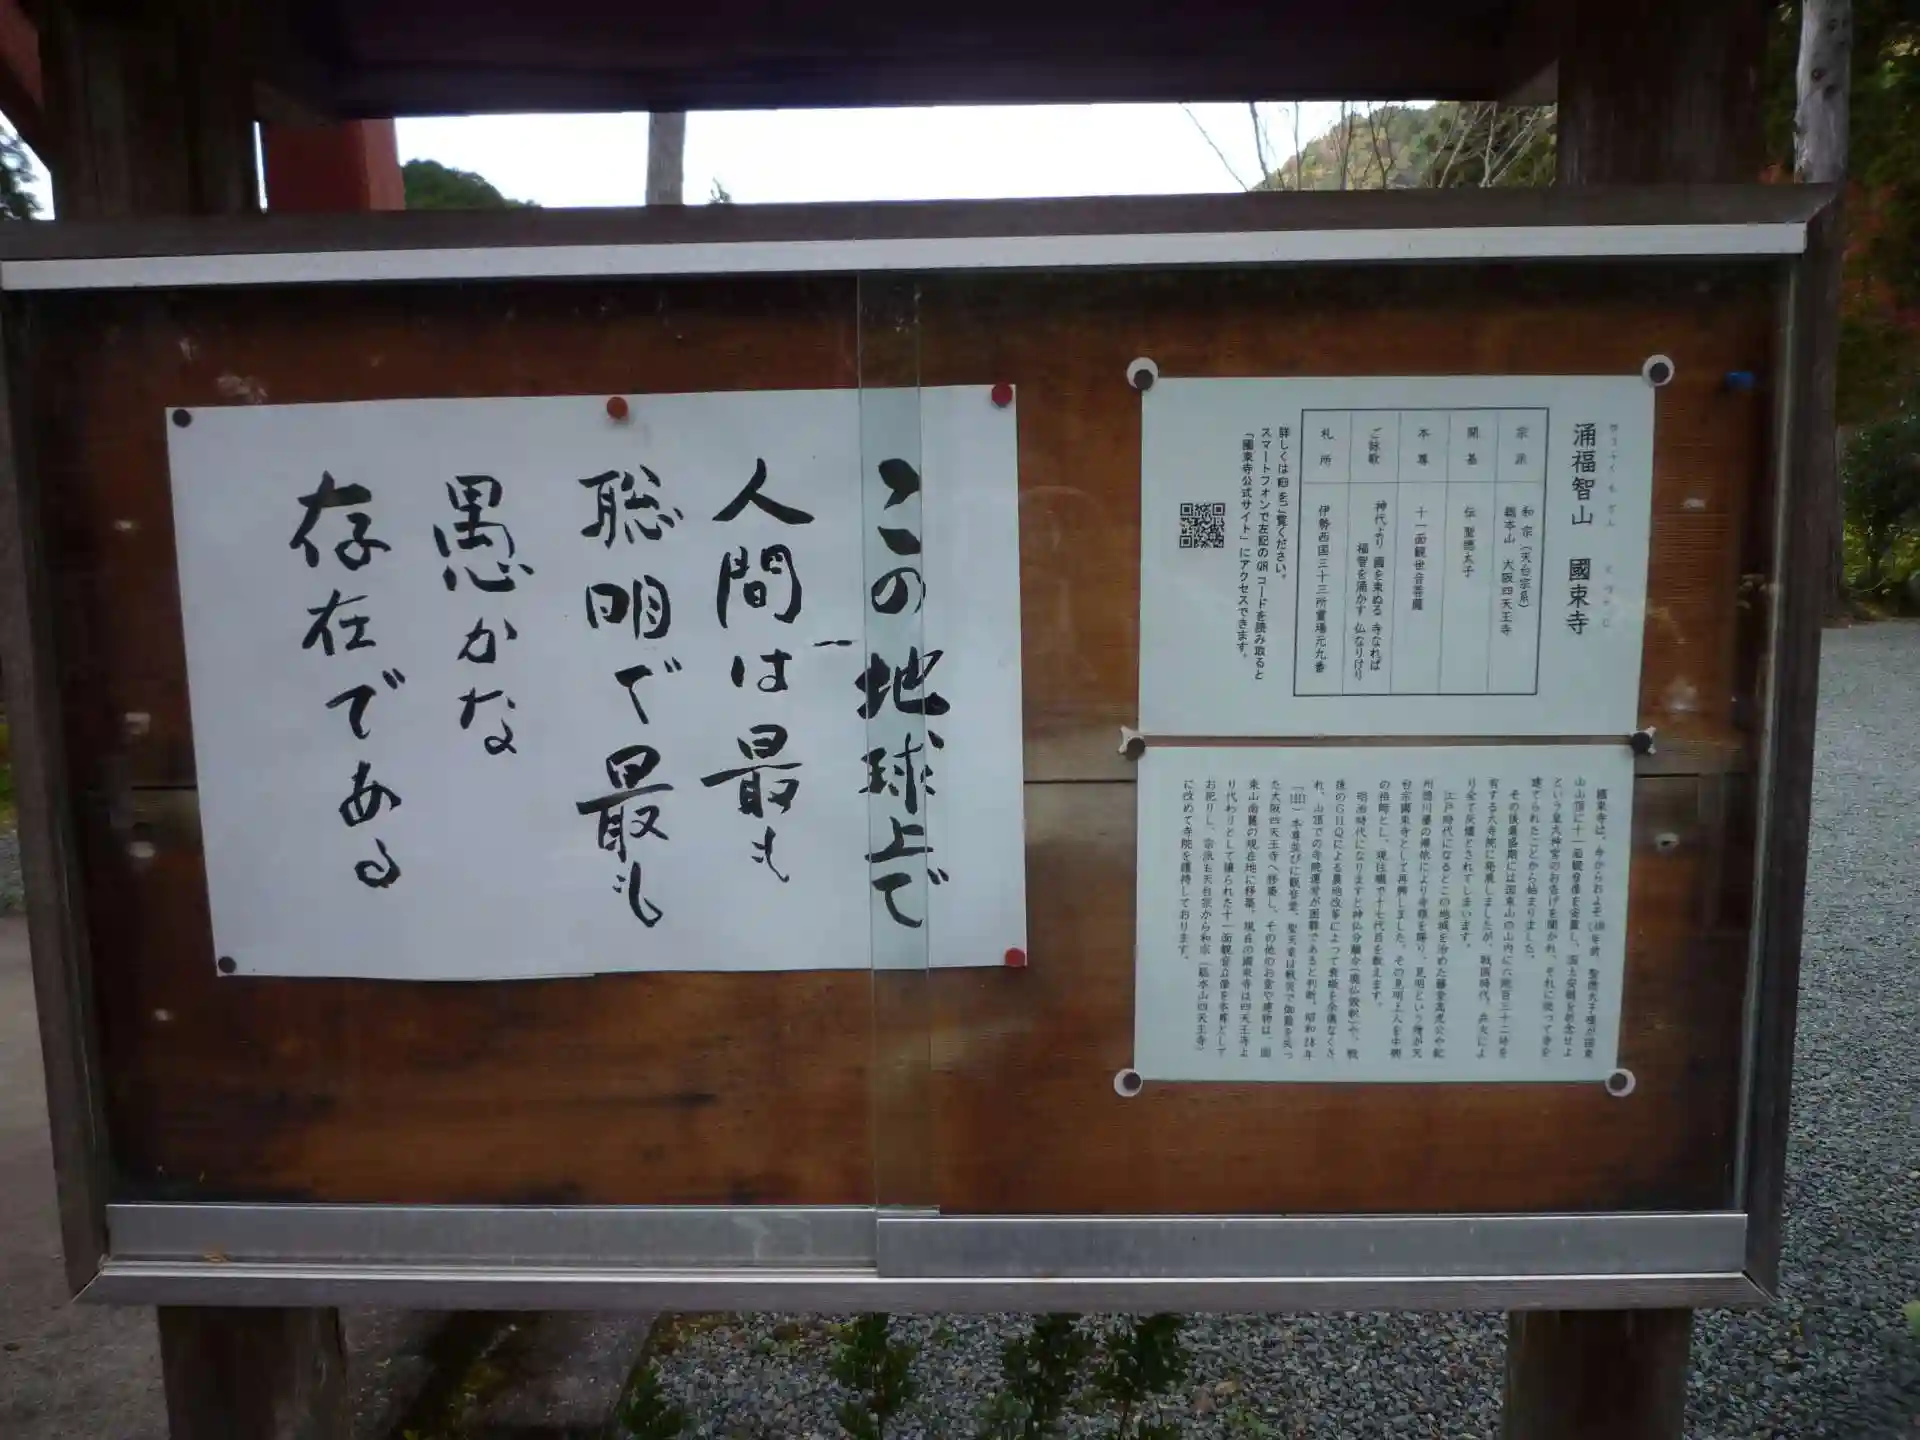 この地球上で
人間は最も
聡明で最も
愚かな
存在である
涌福智山 國束寺
宗派 和宗(天台宗系)
総本山 大阪四天王寺
開基 伝 聖徳太子
本尊 十一面観世音菩薩
ご詠歌 神代より 國を束ぬる 寺なれば
福智を涌かす 仏なりけり
札所 伊勢西国三十三所霊場元九番
詳しくは をご覧ください。
スマートフォンで左記のQRコードを読み取ると
「國束寺公式サイト」にアクセスできます。
國束寺は、今からおよそ 年前 聖徳太子様が国束
山山頂に十一面観音像を安置し、国土安穏を祈念せよ
という皇大神宮のお告げを聞かれ、それに従って寺を
建てられたことから始まりました。
その後最盛期には国束山の山内に六院百三十二坊を
有する大寺院に発展しましたが、戦国時代、兵火によ
り全て灰燼とされてしまいます。
江戸時代になるとこの地域を治めた藤堂高虎公や紀
州徳川藩の帰依により寺領を賜り、見明という僧が天
台宗國束寺として再興しました。その見明上人を中興
の祖師とし、現住職で十七代目を数えます。
明治時代になりますと神仏分離令(廃仏毀釈)や、戦
後のGHQによる農地改革によって衰微を余儀なくさ
れ、山頂での寺院運営が困難であると判断。昭和28年
本尊並びに観音堂、聖天堂は戦災で伽藍を失っ
た大阪四天王寺へ移築し、その他のお堂や建物は、国
束山南麓の現在地に移築。現在の國束寺は四天王寺よ
り代わりとして譲られた十一面観音立像を本尊として
お祀りし、宗派も天台宗から和宗(総本山四天王寺)
に改めて寺院を護持しております。